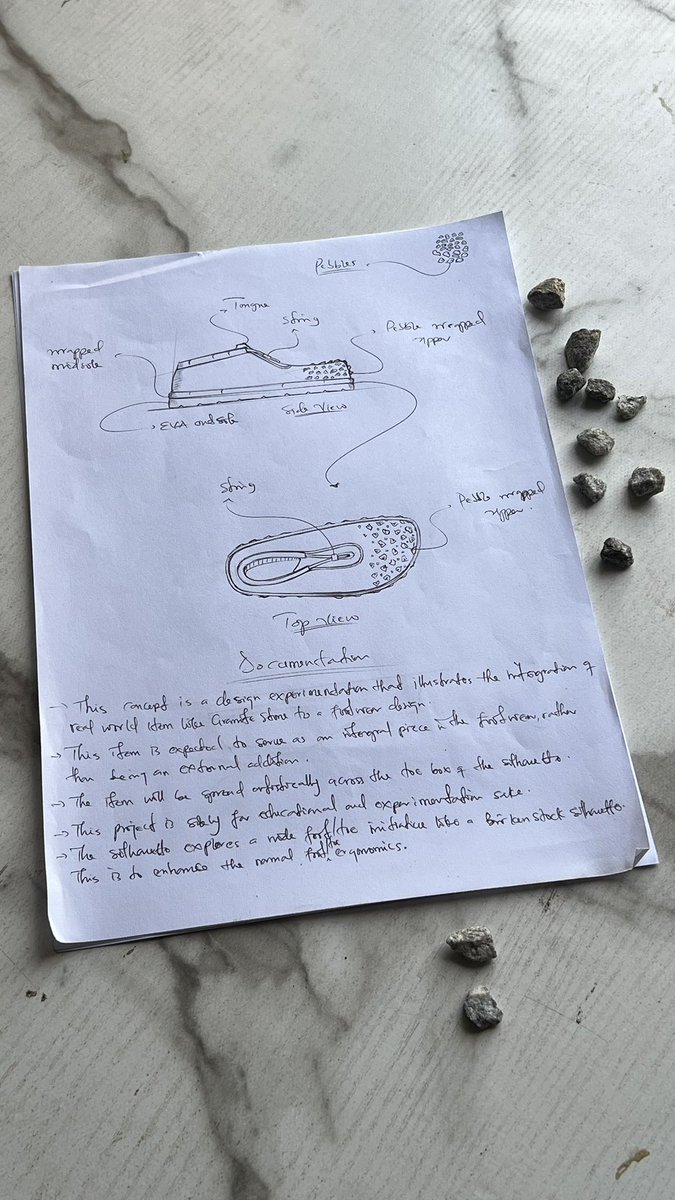 Pebbles
Tongue
String
Pebble wrapped
upper
wrapped
midsole
Side View
EVA outsole
String
Pebble wrapped
upper.
Top View
Documentation
→ This concept is a design experimentation that illustrates the integration of
real world item like Granite stone to a footwear design.
→ This item is expected to serve as an intergral piece in the footwear, rather
than being an external addition.
→ The item will be spread artistically across the toe box of the silhouette.
→ This project is solely for educational and experimentation sake.
→ The silhouette explores a wide foot/toe initiative like a Birkenstock silhouette.
This is to enhance the normal foot/toe ergonomics.